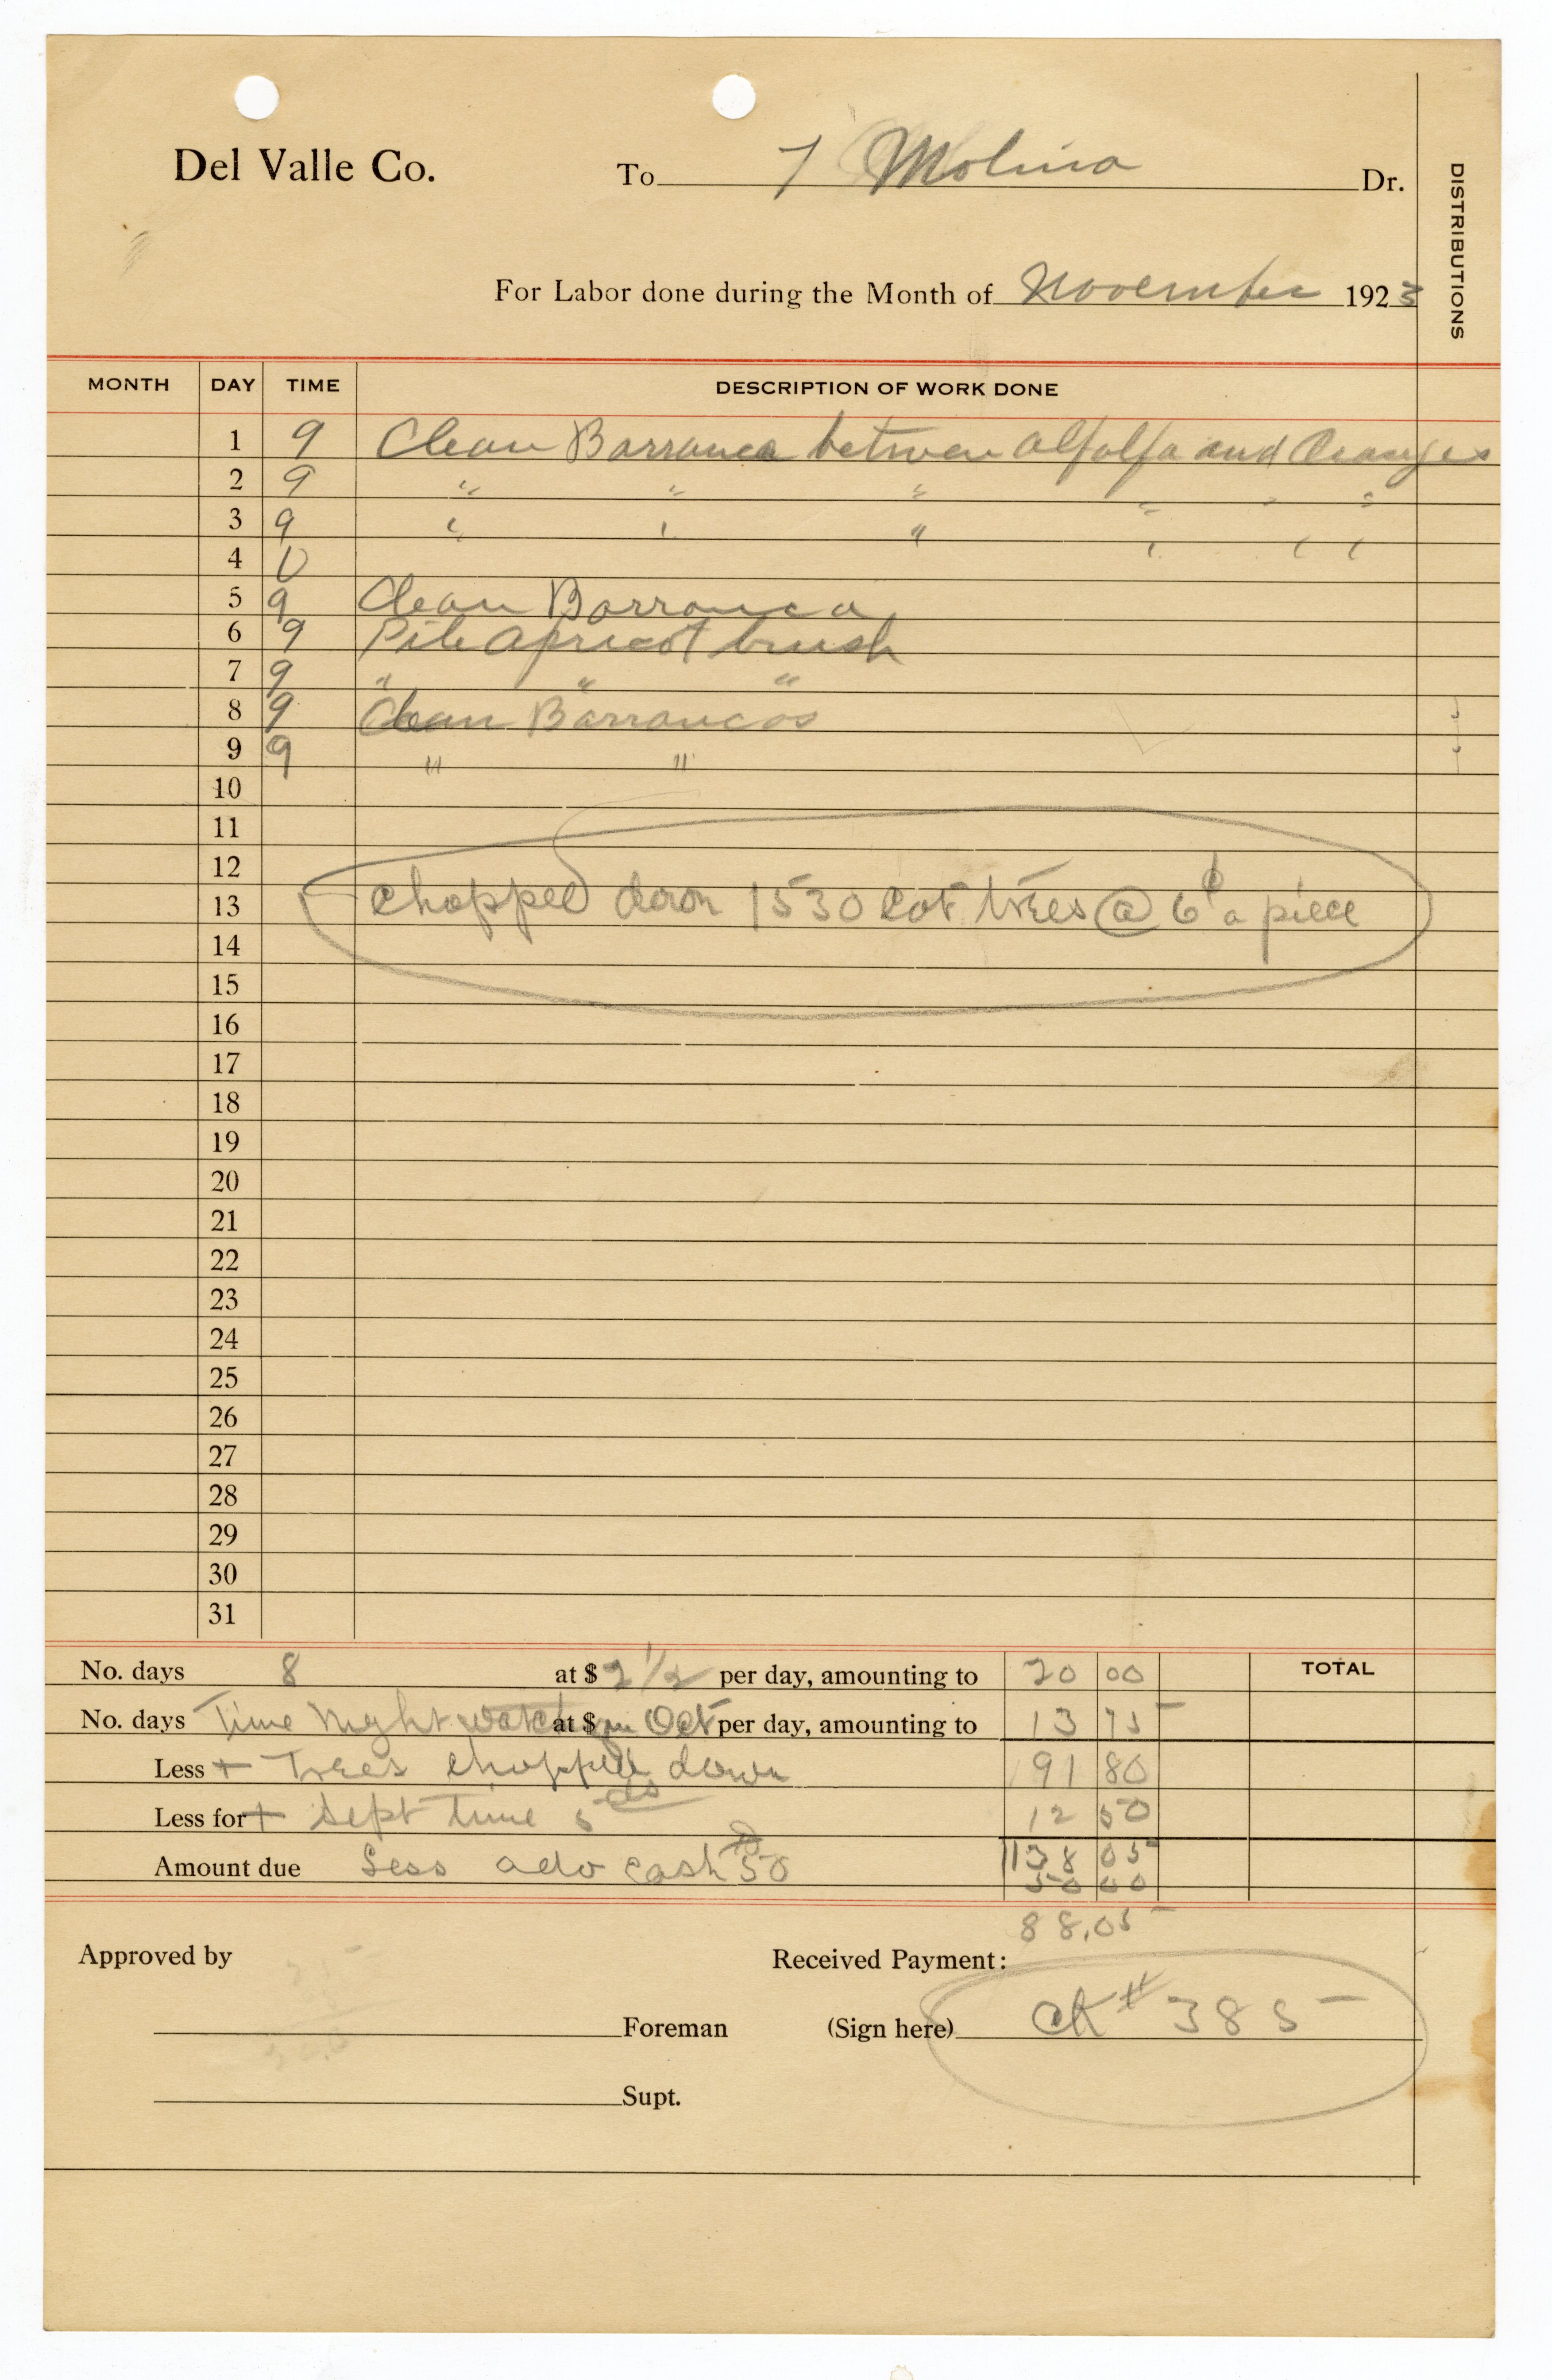 Del Valle Co. To 7 Molina Dr.
DISTRIBUTIONS
For Labor done during the Month of November 1923
MONTH DAY TIME DESCRIPTION OF WORK DONE
1 9 Clean Barranca between alfalfa and Oranges
2 9 " " " " " "
3 9 " " " " " "
4 0
5 9 Clean Barranca
6 9 Pile apricot brush
7 9 " " "
8 9 Clean Barrancas
9 9 " "
10
11
12
13 chopped down 1530 Cot trees @ 6¢ a piece
14
15
16
17
18
19
20
21
22
23
24
25
26
27
28
29
30
31
No. days 8 at $ 2 1/2 per day, amounting to 20 00 TOTAL
No. days Time Night watch in Oct at $ per day, amounting to 13 75
Less + Trees chopped down 91 80
Less for + Sept time 5 ds 12 50
Amount due Less adv cash 50 138 05
50 00
88.05
Approved by Received Payment:
Foreman (Sign here) CK # 385
Supt.